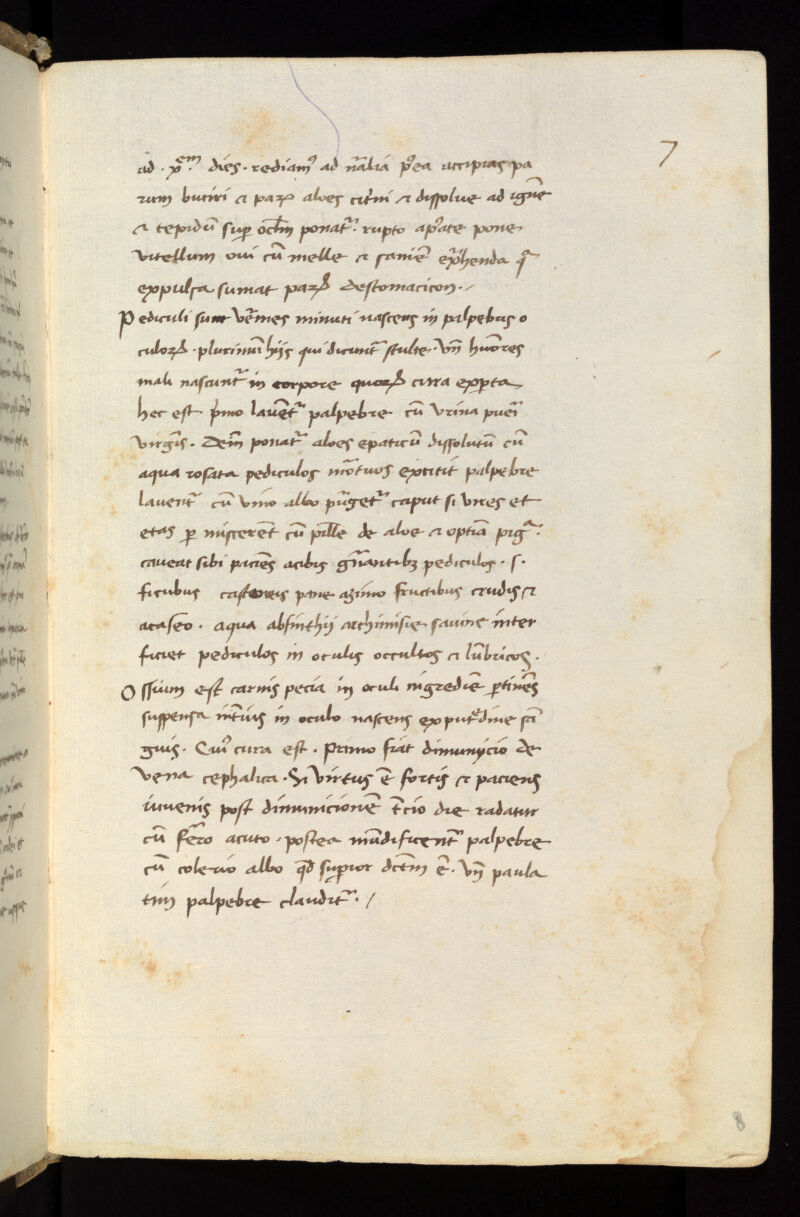 7
ad · xv^em · dies · rediam᷒ ad nr̃alia p᷒ea accipias pa
rum butiri & paꝝ aloes citrni & dissolue ad ignẽ
& tepidũ sup oclm̃ ponat᷑ rupto ap᷒ate pone
vitellum oui cũ melle & saniẽ ext᷑henda
expulsa sumat paꝝ destomaticon ·/
Pediculi sunt v̓mes minuti nascens in palpebris o
culoꝝ · plurimũ hijs qui dicunt᷑ stulte · vñ hũores
mali nascunt᷑ in corpore quoꝝ cura exp̱ta
hec est · pᷓmo lauent᷑ palpebre cũ vrina pueri
virgĩs · Deĩn ponat᷑ aloes epaticũ dissolutũ cũ
aqua rosata pediculos mortuos extitit palpebre
lauent᷑ cũ vino albo pũget᷑ caput si vires et
etas p̱miscerent cũ pill̃e de aloe & optĩa pig᷑ᵃ ·
caueat sibi paciẽs acibis gñantibꝫ pediculos · s ·
ficubus castaneis pane azimo fructibus crudis &
acaseo · aqua absinthij archimisie sauine inter
ficiet pediculos in oculis occultos & lũbricos ·
Ossium est carnis pecia in oculi nigrediẽ p̱tinẽs
suspensa int᷑ius in oculo nascens ex putᵉdine sã
guis · Cui᷒ cura est · Primo fiat dimunicio de
vena cephalica · Si virtus ẽ fortis & paciens
iuuenis post dimunicionẽ t̃cio die radatur
cũ fer̃o acuto · postea mũdificent᷑ palpebre
cũ colerio albo qd̃ sup̱ior dc̃tm ẽ · vñ paula
tim palpebre claudit᷑ · /
8